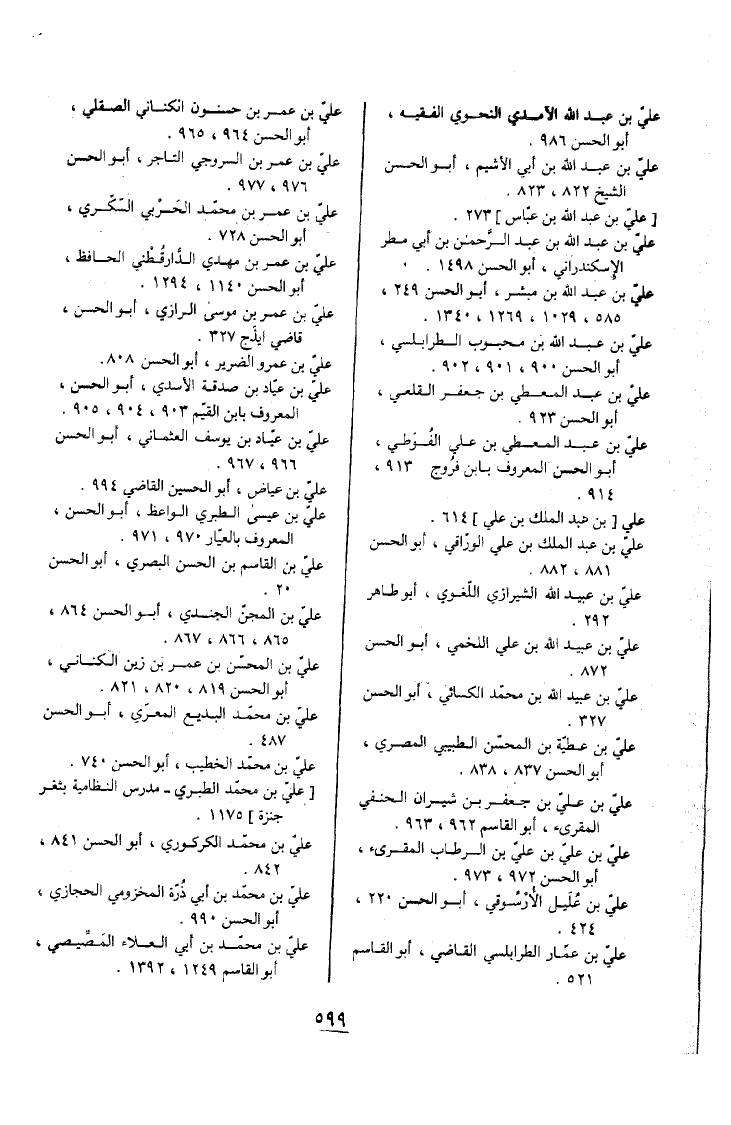 عليّ بن عبد الله الآمدي النحوي الفقيه ،
أبو الحسن ٩٨٦ .
عليّ بن عبد الله بن أبي الأشيم ، أبو الحسن
الشيخ ٨٢٢ ، ٨٢٣ .
[ عليّ بن عبد الله بن عبّاس ] ٢٧٣ .
عليّ بن عبد الله بن عبد الرَّحمٰن بن أبي مطر
الإسكندراني ، أبو الحسن ١٤٩٨ .
عليّ بن عبد الله بن مبشر ، أبو الحسن ٢٤٩ ،
٥٨٥ ، ١٠٢٩ ، ١٢٦٩ ، ١٣٤٠ .
عليّ بن عبد الله بن محبوب الطرابلسي ،
أبو الحسن ٩٠٠ ، ٩٠١ ، ٩٠٢ .
عليّ بن عبد المعطي بن جعفر القلعي ،
أبو الحسن ٩٢٣ .
عليّ بن عبد المعطي بن علي الفُوّطي ،
أبو الحسن المعروف بابن فرّوج ٩١٣ ،
٩١٤ .
علي [ بن عبد الملك بن علي ] ٦١٤ .
عليّ بن عبد الملك بن علي الورّاقي ، أبو الحسن
٨٨١ ، ٨٨٢ .
عليّ بن عبيد الله الشيرازي اللّغوي ، أبو طاهر
٢٩٢ .
عليّ بن عبيد الله بن علي اللخمي ، أبو الحسن
٨٧٢ .
عليّ بن عبيد الله بن محمّد الكسائي ، أبو الحسن
٣٢٧ .
عليّ بن عطيّة بن المحسّن الطبيبي المصري ،
أبو الحسن ٨٣٧ ، ٨٣٨ .
عليّ بن عليّ بن جعفر بن شيران الحنفي
المقرىء ، أبو القاسم ٩٦٢ ، ٩٦٣ .
عليّ بن علي بن عليّ بن الرطاب المقرىء ،
أبو الحسن ٩٧٢ ، ٩٧٣ .
عليّ بن عُلَيل الأُرْسُوقي ، أبو الحسن ٢٢٠ ،
٤٢٤ .
عليّ بن عمّار الطرابلسي القاضي ، أبو القاسم
٥٢١ .
عليّ بن عمر بن حسنون الكناني الصقلي ،
أبو الحسن ٩٦٤ ، ٩٦٥ .
عليّ بن عمر بن السروجي التاجر ، أبو الحسن
٩٧٦ ، ٩٧٧ .
عليّ بن عمر بن محمّد الحَرْبي السّكّري ،
أبو الحسن ٧٢٨ .
عليّ بن عمر بن مهدي الدَّارقُطْني الحافظ ،
أبو الحسن ١١٤٠ ، ١٢٩٤ .
عليّ بن عمر بن موسىٰ الرازي ، أبو الحسن ،
قاضي ايذَج ٣٢٧ .
عليّ بن عمرو الضرير ، أبو الحسن ٨٠٨.
عليّ بن عيّاد بن صدقة الأسدي ، أبو الحسن ،
المعروف بابن القيّم ٩٠٣ ، ٩٠٤ ، ٩٠٥ .
عليّ بن عيّاد بن يوسف العثماني ، أبو الحسن
٩٦٦ ، ٩٦٧ .
عليّ بن عياض ، أبو الحسين القاضي ٩٩٤ .
عليّ بن عيسىٰ الطبري الواعظ ، أبو الحسن ،
المعروف بالعيّار ٩٧٠ ، ٩٧١ .
عليّ بن القاسم بن الحسن البصري ، أبو الحسن
٢٠ .
عليّ بن المجنّ الجندي ، أبو الحسن ٨٦٤ ،
٨٦٥ ، ٨٦٦ ، ٨٦٧ .
عليّ بن المحسّن بن عمر بن زين الكناني ،
أبو الحسن ٨١٩ ، ٨٢٠ ، ٨٢١ .
عليّ بن محمّد البديع المعرّي ، أبو الحسن
٤٨٧ .
عليّ بن محمّد الخطيب ، أبو الحسن ٧٤٠ .
[ عليّ بن محمّد الطبري ـ مدرس النظامية بثغر
جنزة ] ١١٧٥ .
عليّ بن محمّد الكركوري ، أبو الحسن ٨٤١ ،
٨٤٢ .
عليّ بن محمّد بن أبي ذُرّة المخزومي الحجازي ،
أبو الحسن ٩٩٠ .
عليّ بن محمّد بن أبي العلاء المَصِّيصي ،
أبو القاسم ١٢٤٩ ، ١٣٩٢ .
٥٩٩